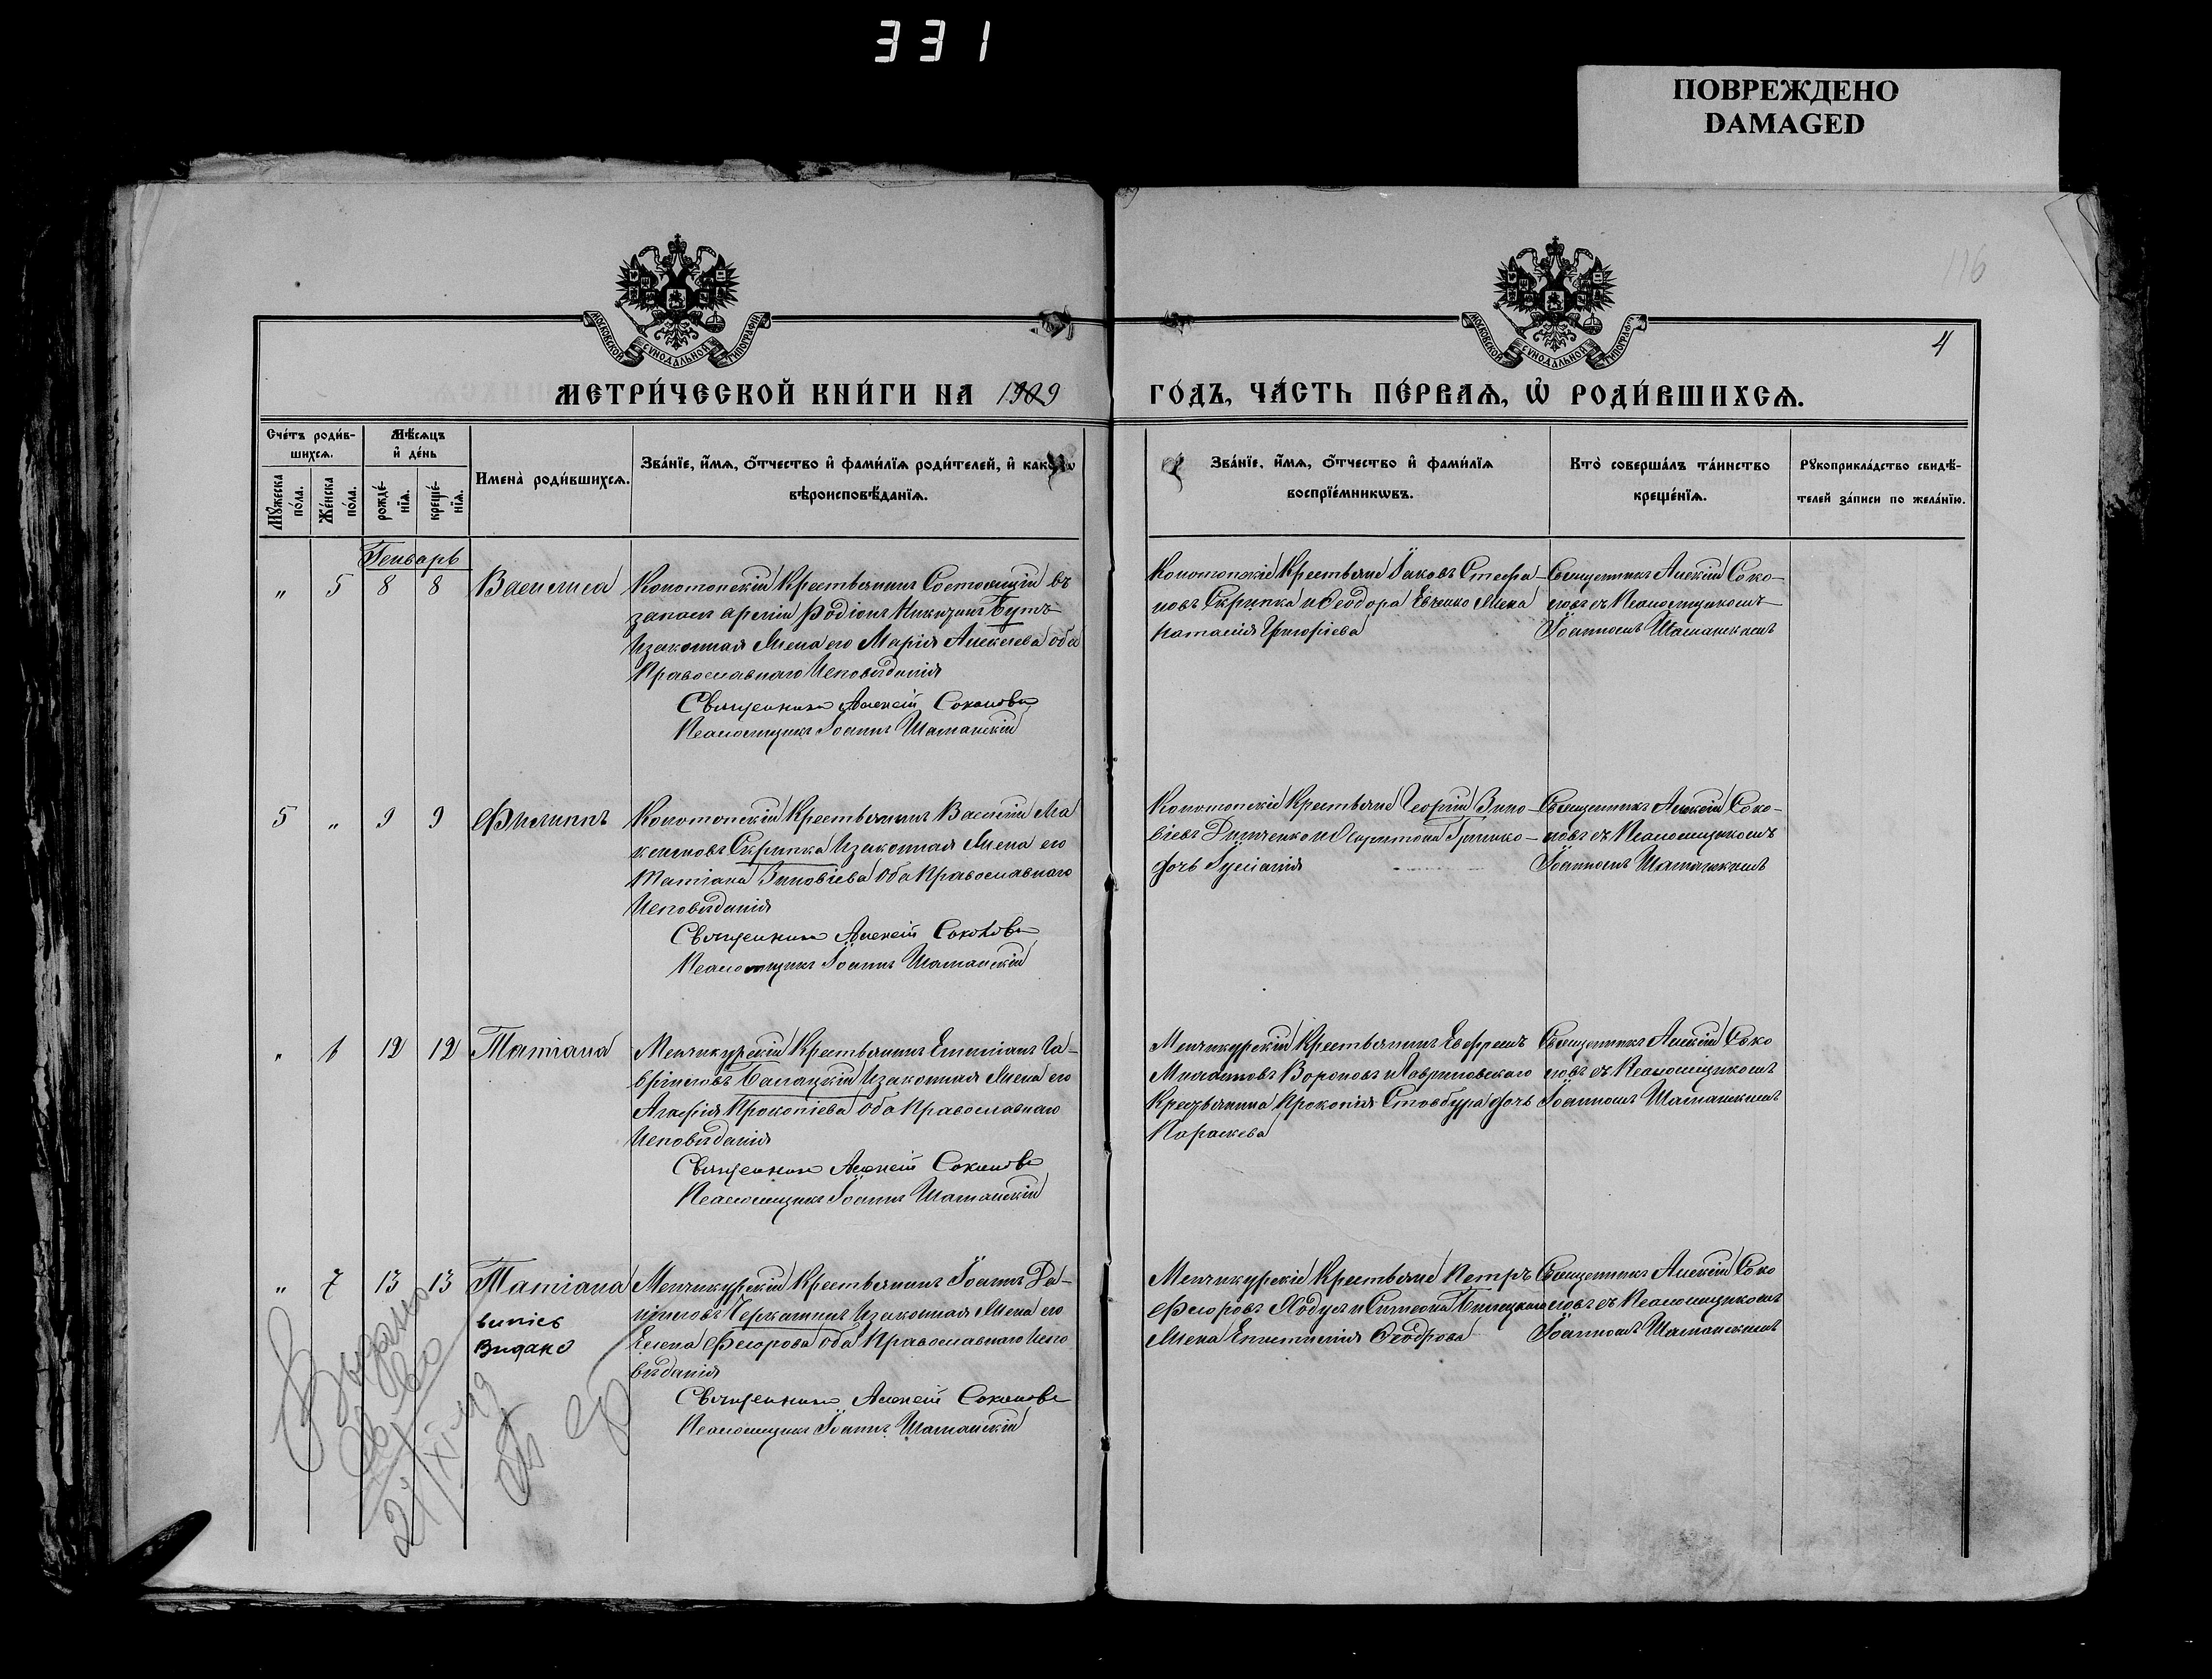 331
ПОВРЕЖДЕНО
DAMAGED
116
МОСКОВСКОЙ СУНОДАЛЬНОЙ ТИПОГРАФIИ
МОСКОВСКОЙ СУНОДАЛЬНОЙ ТИПОГРАФIИ
4
МЕТРИ́ЧЕСКОЙ КНИ́ГИ НА 1909
ГО́ДЪ, ЧА́СТЬ ПЕ́РВАѦ, Ѡ҆ РОДИ́ВШИХСѦ.
Сче́тъ роди́в-
шихсѧ.
Мꙋ́жеска по́ла.
Же́нска по́ла.
Мѣ́сѧцъ
и҆ де́нь
рожде́-
нїѧ.
креще́-
нїѧ.
Имена̀ роди́вшихсѧ.
Зва́нїе, и҆́мѧ, ѻ҆́тчество и҆ фами́лїѧ роди́телей, и҆ како́гѡ
вѣроисповѣ́данїѧ.
Зва́нїе, и҆́мѧ, ѻ҆́тчество и҆ фами́лїѧ
воспрїе́мникѡвъ.
Кто̀ соверша́лъ та́инство
креще́нїѧ.
Рꙋкоприкла́дство свидѣ́-
телей за́писи по жела́нїю.
Генварь
" 5 8 8 Василиса
Конотопскій Крестьянинъ Состоящій въ
запасѣ арміи Родіонъ Никитинъ Бутъ
Изаконная Жена его Марія Алексѣева оба
Православнаго Исповѣданія
Священникъ Алексій Соколовъ
Псаломщикъ Іоаннъ Шаманскій
Конотопскіе Крестьяне Іаковъ Стефа-
новъ Скрипка и Ѳеодора Евченко Жена
Наталія Григоріева
Священникъ Алексій Соко-
ловъ съ Псаломщикомъ
Іоанномъ Шаманскимъ
5 " 9 9 Филиппъ
Конотопскій Крестьянинъ Василій Ма
ксимовъ Скрипка Изаконная Жена его
Татіана Зиновіева Оба Православнаго
Исповѣданія
Священникъ Алексій Соколовъ
Псаломщикъ Іоаннъ Шаманскій
Конотопскіе Крестьяне Георгій Зино-
віевъ и Харитона Гринко-
дочь
Священникъ Алексій Соко-
ловъ съ Псаломщикомъ
Іоанномъ Шаманскимъ
" 6 12 12 Татіана
Менчикурскій Крестьянинъ Емиліанъ Га-
вріиловъ Балацкій Изаконная Жена его
Агафія Прокопіева Оба Православнаго
Исповѣданія
Священникъ Алексій Соколовъ
Псаломщикъ Іоаннъ Шаманскій
Менчикурскій Крестьянинъ Евфремъ
Михаиловъ Вороновъ и Гавриловскаго
Крестьянина Прокопія Стовбура дочь
Параскева
Священникъ Алексій Соко
ловъ съ Псаломщикомъ
Іоанномъ Шаманскимъ
" 7 13 13 Татіана
випісь
видано
Менчикурскій Крестьянинъ Іоаннъ Да-
ніиловъ Черкашинъ Изаконная Жена его
Елена Феодорова оба Православнаго Испо
вѣданія
Священникъ Алексій Соколовъ
Псаломщикъ Іоаннъ Шаманскій
Менчикурскіе Крестьяне Петръ
Феодоровъ Ходусъ и Симеона Билецкаго
Жена Епистимія Ѳеодорова
Священникъ Алексій Соко
ловъ съ Псаломщикомъ
Іоанномъ Шаманскимъ
Выдано
св-во